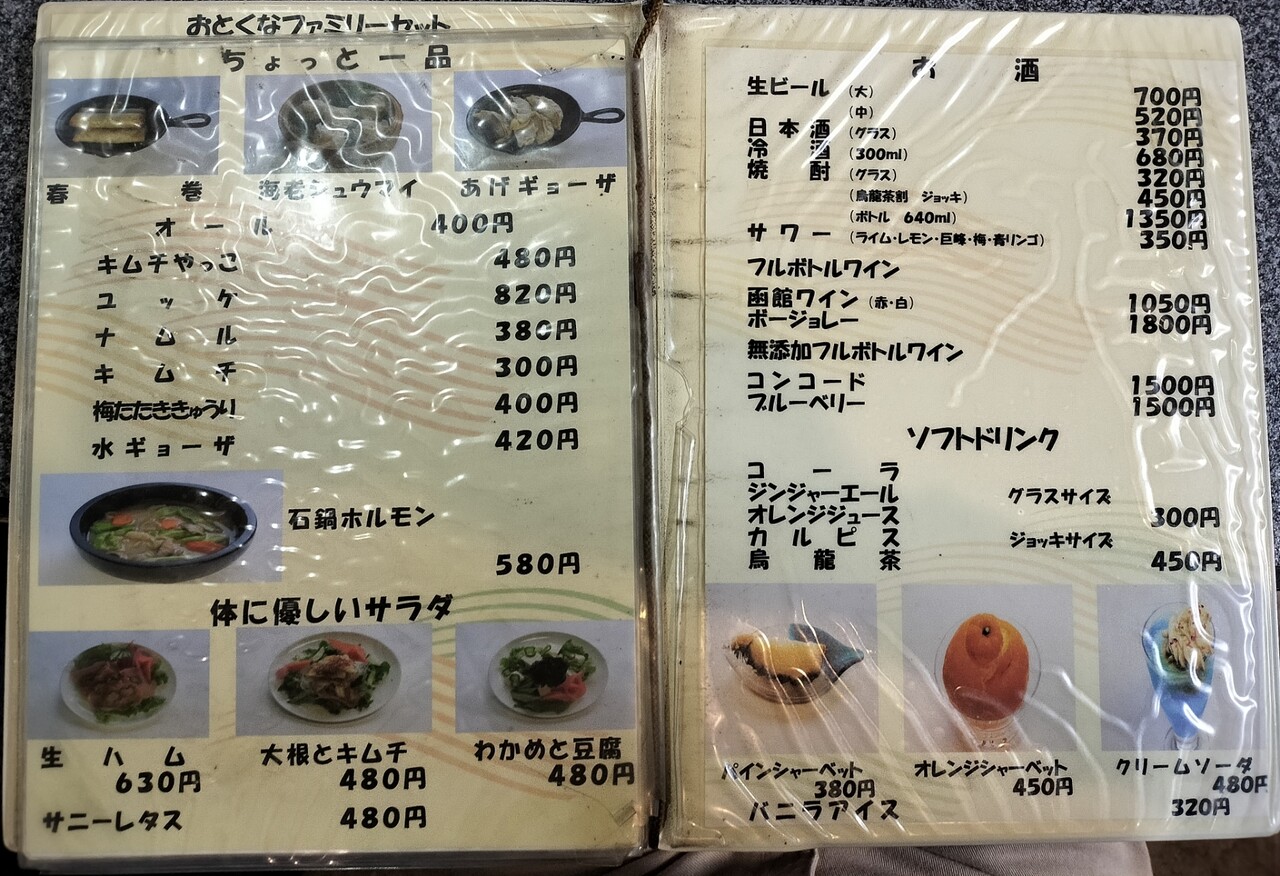 おとくなファミリーセット
ちょっと一品
春巻 海老シュウマイ あげギョーザ
オール 400円
キムチやっこ 480円
ユッケ 820円
ナムル 380円
キムチ 300円
梅たたききゅうり 400円
水ギョーザ 420円
石鍋ホルモン
580円
体に優しいサラダ
生ハム 大根とキムチ わかめと豆腐
630円 480円 480円
サニーレタス 480円
お酒
生ビール (大) 700円
(中) 520円
日本酒 (グラス) 370円
冷酒 (300ml) 680円
焼酎 (グラス) 320円
(烏龍茶割 ジョッキ) 450円
(ボトル 640ml) 1350円
サワー (ライム・レモン・巨峰・梅・青リンゴ) 350円
フルボトルワイン
函館ワイン (赤・白) 1050円
ボージョレー 1800円
無添加フルボトルワイン
コンコード 1500円
ブルーベリー 1500円
ソフトドリンク
コーラ
ジンジャーエール グラスサイズ
オレンジジュース 300円
カルピス ジョッキサイズ
烏龍茶 450円
パインシャーベット オレンジシャーベット クリームソーダ
380円 450円 480円
バニラアイス 320円